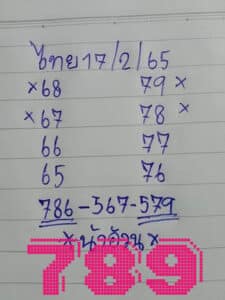 ไทย 17/2/65
×68 79×
×67 78×
66 77
65 76
786-567-579
×น้าอ้วน×
789